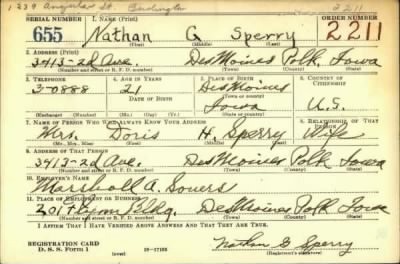 1239 Angular St. Burlington
2211
SERIAL NUMBER 1. NAME (Print) ORDER NUMBER
655 Nathan G Sperry 2211
(First) (Middle) (Last)
2. ADDRESS (Print)
3413-2d Ave. Des Moines Polk, Iowa
(Number and street or R. F. D. number) (Town) (County) (State)
3. TELEPHONE 4. AGE IN YEARS 5. PLACE OF BIRTH 6. COUNTRY OF CITIZENSHIP
3-0888 21 Des Moines
DATE OF BIRTH Iowa U.S.
(Exchange) (Number) (Mo.) (Day) (Yr.) (State or country)
7. NAME OF PERSON WHO WILL ALWAYS KNOW YOUR ADDRESS 8. RELATIONSHIP OF THAT PERSON
Mrs. Doris H. Sperry Wife
(Mr., Mrs., Miss) (First) (Middle) (Last)
9. ADDRESS OF THAT PERSON
3413-2d Ave. Des Moines Polk Iowa
(Number and street or R. F. D. number) (Town) (County) (State)
10. EMPLOYER'S NAME
Marshall A. Sowers
11. PLACE OF EMPLOYMENT OR BUSINESS
201 Flynn Bldg. Des Moines Polk Iowa
(Number and street or R. F. D. number) (Town) (County) (State)
I AFFIRM THAT I HAVE VERIFIED ABOVE ANSWERS AND THAT THEY ARE TRUE.
REGISTRATION CARD
D. S. S. Form 1 (over) Nathan G Sperry
(Registrant's signature)